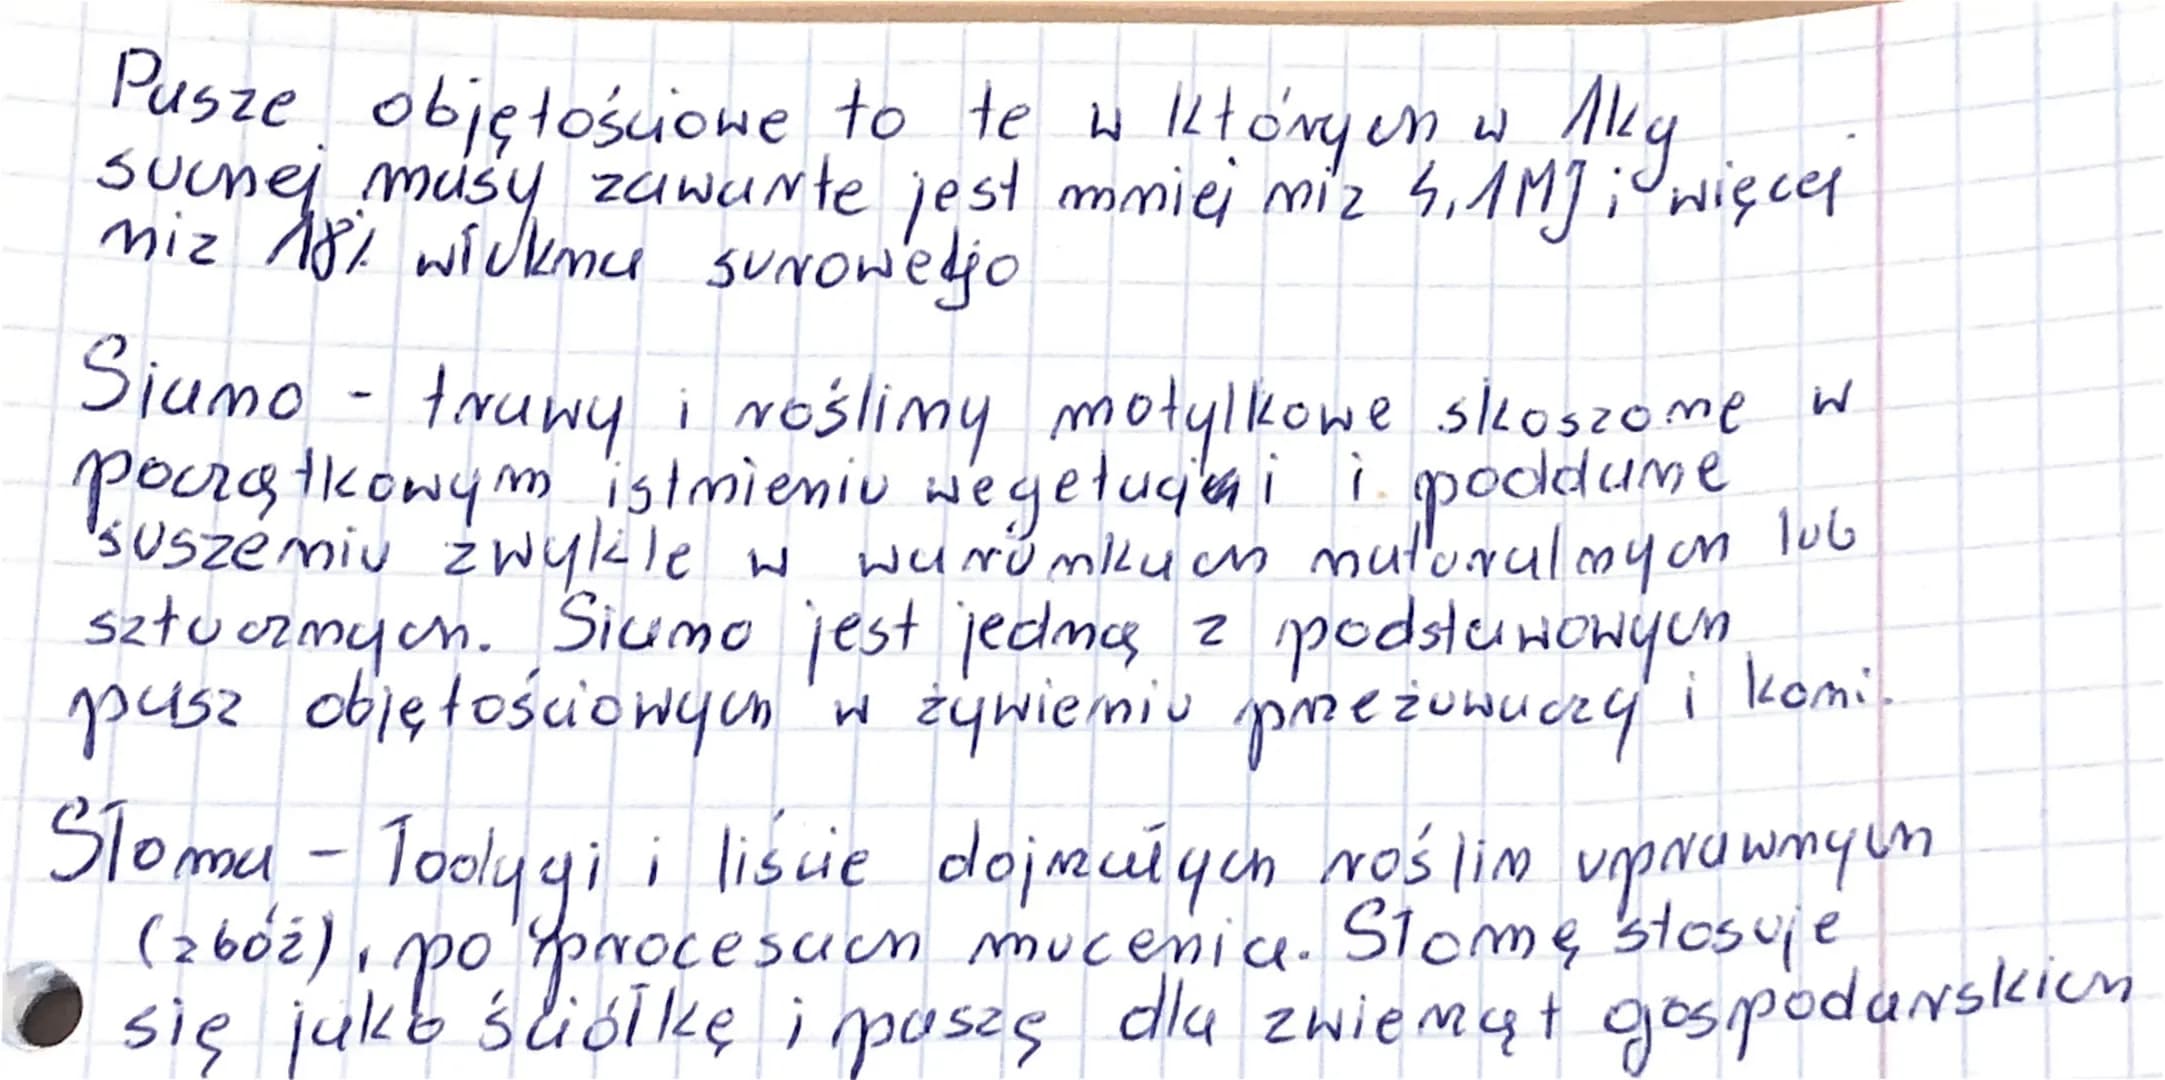 Pasze objętościowe to te w których w 1kg
suchej masy zawarte jest mniej niz 4,1MJ i więcej
niz 18% włukna surowego
Siano - trawy i rośliny motylkowe skoszone w
początkowym istnieniu wegetacji i poddane
suszeniu zwykle w warunkach naturalnych lub
sztucznych. Siano jest jedną z podstawowych
pasz objętościowych w żywieniu przeżuwaczy i koni.
Słoma - łodygi i liście dojrzałych roślin uprawnych
(zbóż), po procesach mucenia. Słomę stosuje
się jako ściółkę i paszę dla zwierząt gospodarskich